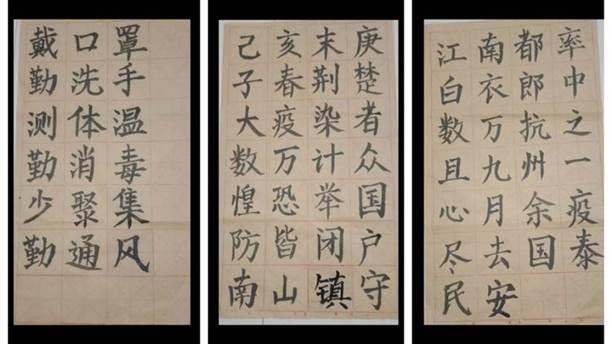 戴口罩
勤洗手
测体温
勤消毒
少聚集
勤通风
己亥末庚
子春荆楚
大疫染者
数万计众
惶恐举国
防皆闭户
南山镇守
江南都率
白衣郎中
数万抗之
且九州一
心月余疫
尽去国泰
民安